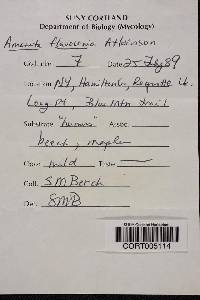 SUNY CORTLAND
Department of Biology (Mycology)
Amanita flavoconia Atkinson
Coll. No. 7 Date 25 Aug 89
Location NY, Hamilton Co, Raquette Lk.
Long Pt, Blue Mtn trail
Substrate "humus" Assoc.
beech, maple
Odor mild Taste —
Coll. SM Berch
Det. SMB
CORT005114